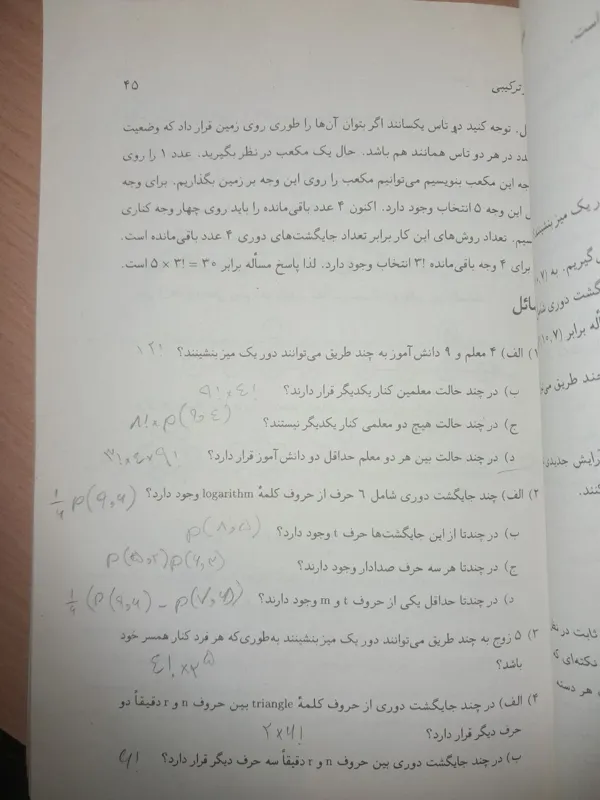 ترکیبی ۴۵
ل. توجه کنید دو تاس یکسانند اگر بتوان آن‌ها را طوری روی زمین قرار داد که وضعیت
دد در هر دو تاس همانند هم باشد. حال یک مکعب در نظر بگیرید. عدد ۱ را روی
جه این مکعب بنویسیم می‌توانیم مکعب را روی این وجه بر زمین بگذاریم. برای وجه
ل این وجه ۵ انتخاب وجود دارد. اکنون ۴ عدد باقی‌مانده را باید روی چهار وجه کناری
سیم. تعداد روش‌های این کار برابر تعداد جایگشت‌های دوری ۴ عدد باقی‌مانده است.
برای ۴ وجه باقی‌مانده !۳ انتخاب وجود دارد. لذا پاسخ مسأله برابر ۳۰ = !۳ × ۵ است.
سائل
۱) الف) ۴ معلم و ۹ دانش‌آموز به چند طریق می‌توانند دور یک میز بنشینند؟ ۱۲!
ب) در چند حالت معلمین کنار یکدیگر قرار دارند؟ ۹!×٤!
ج) در چند حالت هیچ دو معلمی کنار یکدیگر نیستند؟ ۸!×p(۹,٤)
د) در چند حالت بین هر دو معلم حداقل دو دانش‌آموز قرار دارد؟ ۳!×٤×۹!
۲) الف) چند جایگشت دوری شامل ۶ حرف از حروف کلمهٔ logarithm وجود دارد؟ ۱/۶ p(۹,۶)
ب) در چندتا از این جایگشت‌ها حرف t وجود دارد؟ p(۸,۵)
ج) در چندتا هر سه حرف صدادار وجود دارند؟ p(۵,۲)p(۶,۳)
د) در چندتا حداقل یکی از حروف t و m وجود دارند؟ ۱/۶ (p(۹,۶) - p(۷,۶))
۳) ۵ زوج به چند طریق می‌توانند دور یک میز بنشینند به‌طوری‌که هر فرد کنار همسر خود
باشد؟ ٤!×۲^۵
۴) الف) در چند جایگشت دوری از حروف کلمهٔ triangle بین حروف n و r دقیقاً دو
حرف دیگر قرار دارد؟ ۲×۶!
ب) در چند جایگشت دوری بین حروف n و r دقیقاً سه حرف دیگر قرار دارد؟ ۶!
است.
ور یک میز بنشینند
گشت دوری
له برابر
چند طریق
آرایش جدیدی
کنند.
ثابت در نظ
هر دسته